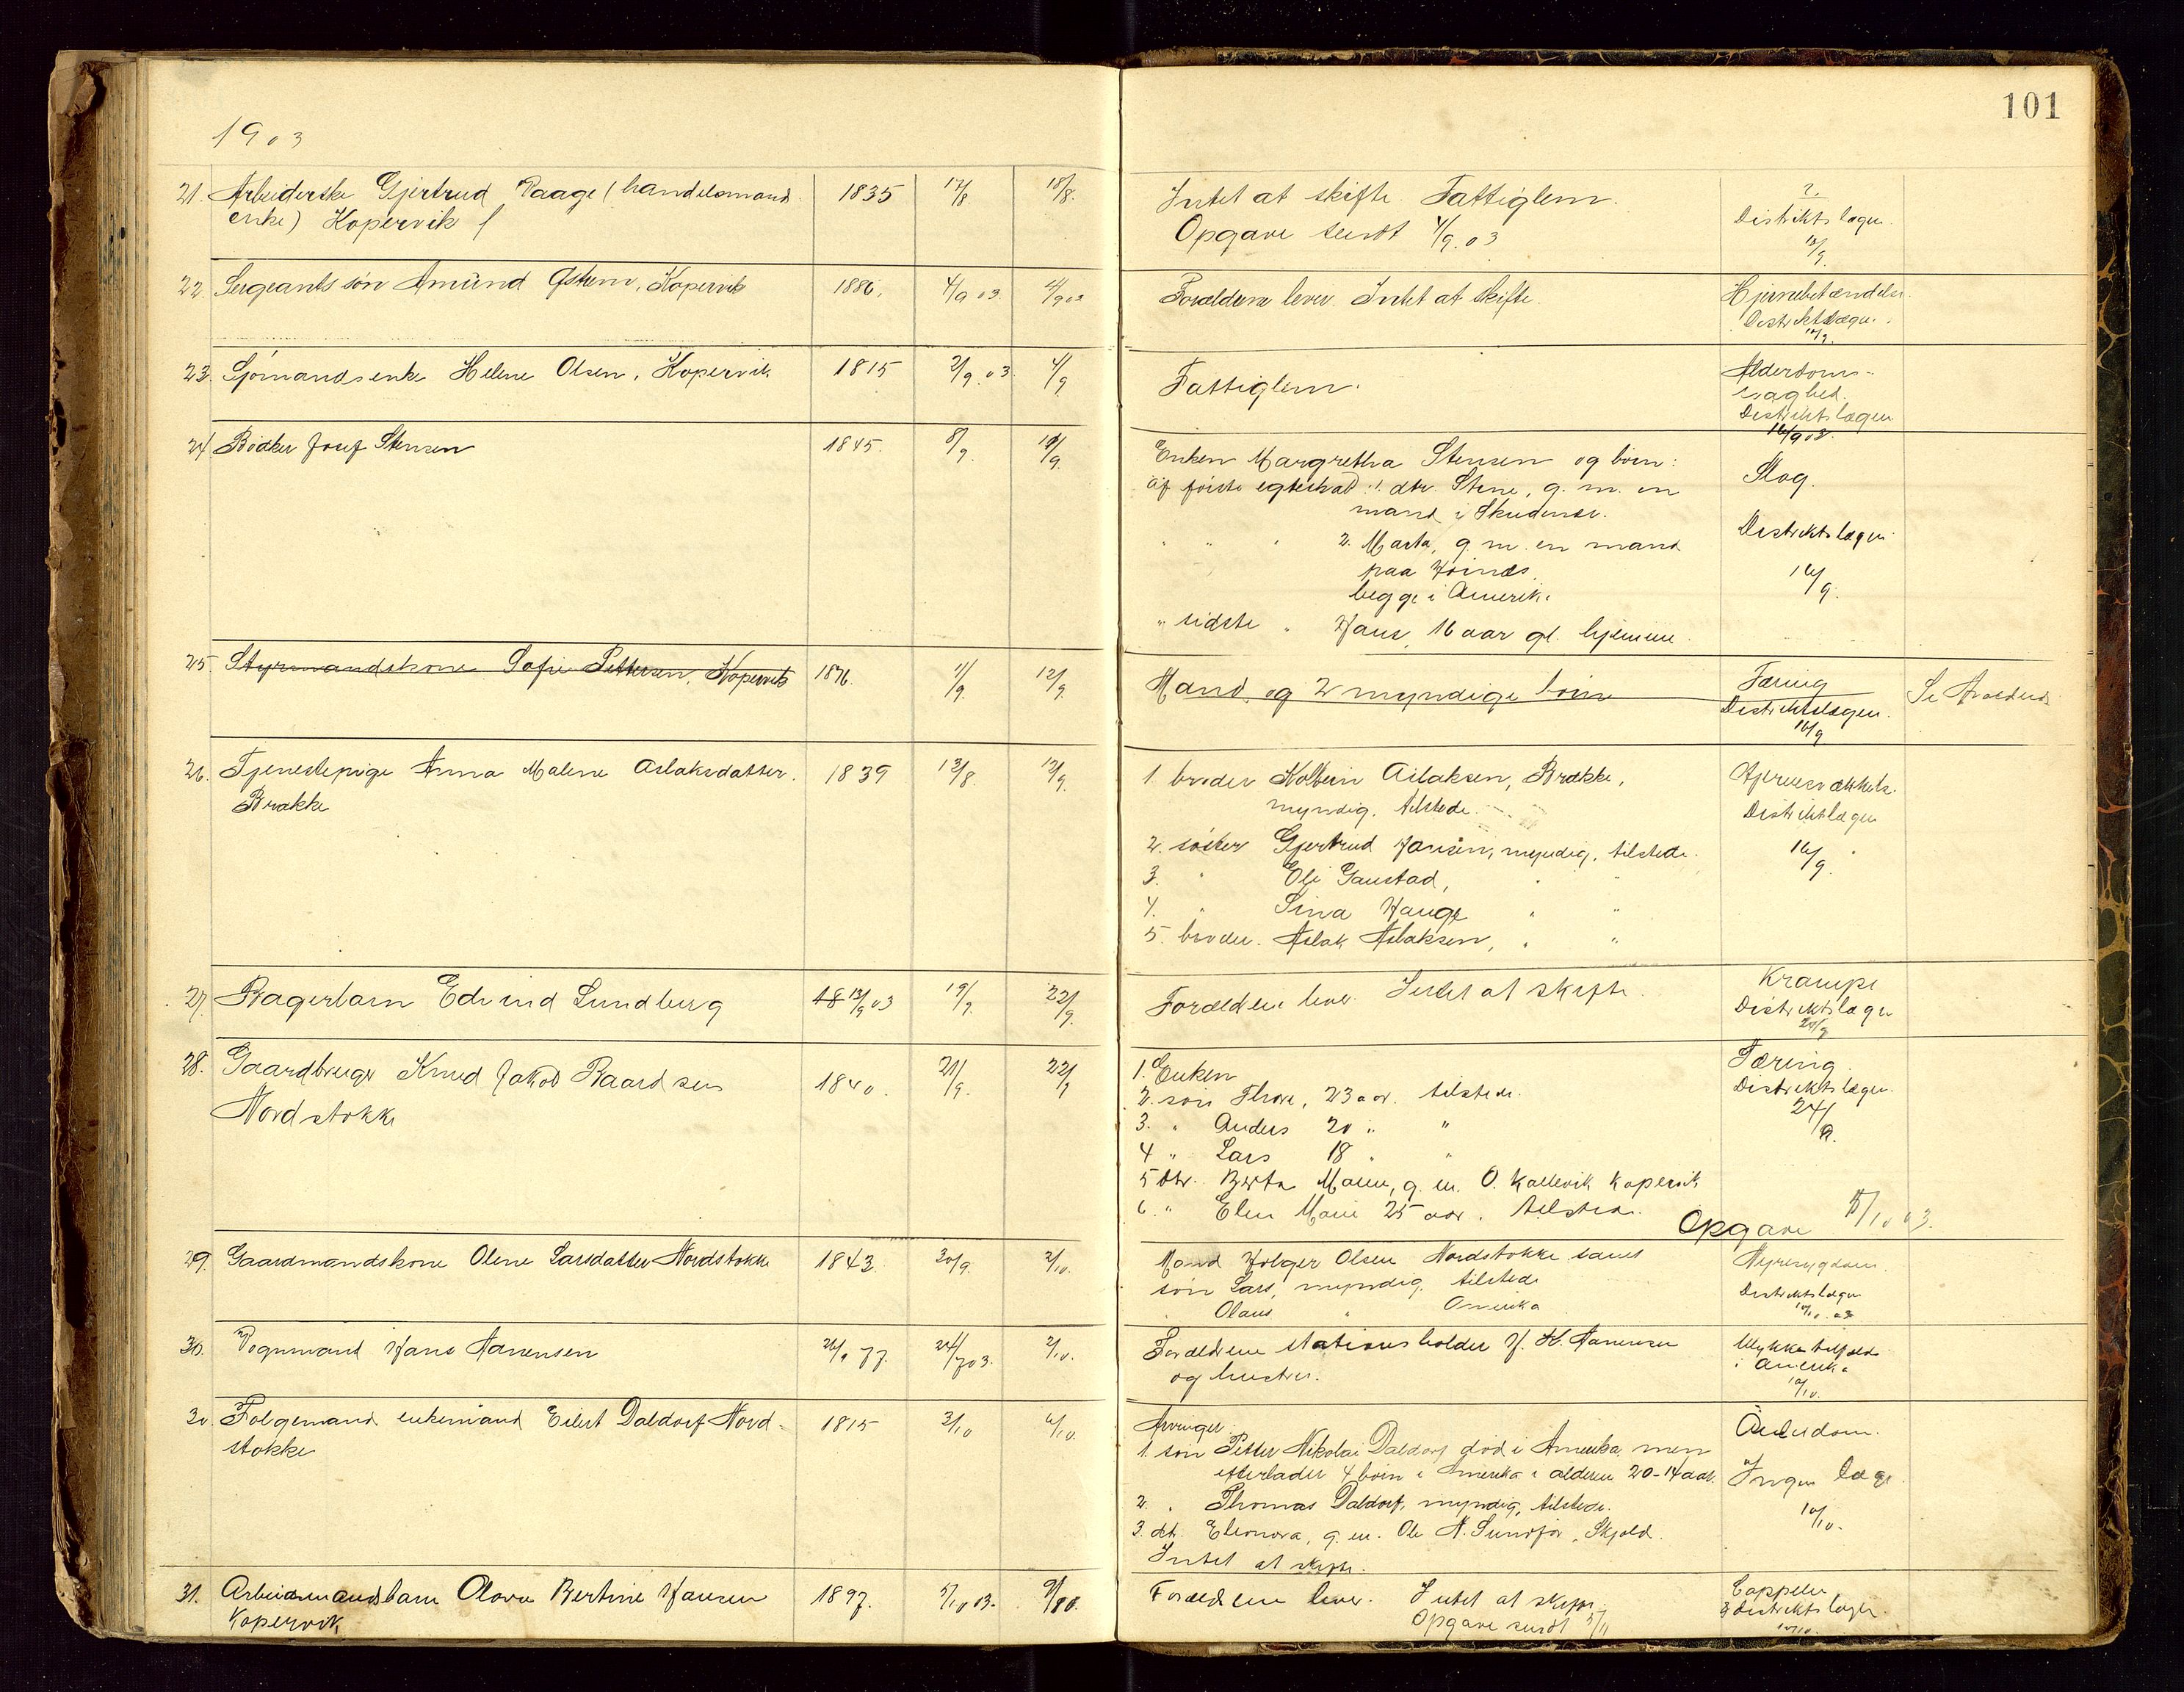 101
1903
21. Arbeiderske Gjertrud Vaage (handelsmand
enke) Kopervik
1835
17/8
18/8.
Intet at skifte. Fattiglem.
Opgave sendt 4/9.03
?
Distriktslægen.
22. Sergeants søn Amund Østrem, Kopervik
1886.
4/9 03
4/9 03
Forældrene lever. Intet at skifte.
Hjernebetændelse.
Distriktslægen.
23. Sjømandsenke Helene Olsen, Kopervik
1815
2/9.03.
4/9
Fattiglem.
Alderdoms-
svaghed.
Distriktslægen
16/9 03.
24. Bødker Josef Stensen
1845.
8/9.
Enken Margretha Stensen og børn:
af første egteskab: 1. dtr. Stine, g. m. en
mand i Skudenes.
" " " 2. Marta, g. m. en mand
paa
begge i Amerika
" sidste " Hans, 16 aar gl. hjemme.
Slag.
Distriktslægen
16/9.
25. Styrmandskone Sofie Pettersen, Kopervik
1876.
11/9.
12/9.
Mand og 2 myndige børn
Tæring
Distriktslægen.
16/9
Se
26. Tjenestepige Anna Malene Aslaksdatter.
Brække
1839
13/8.
12/9.
1. broder Kolbein Aslaksen, Brække,
myndig, tilstede.
2. søster Gjertrud Hansen, myndig, tilstede.
3. " Eli Gaustad, " "
4. " Sina Hauge " "
5. broder. Aslak Aslaksen, " "
Distriktslægen
16/9.
27. Bagerbarn Edvind Lundberg
18 13/9 03
19/9.
22/9.
Forældrene lever. Intet at skifte.
Krampe
Distriktslægen
28. Gaardbruger Knud Jakob Baardsen
Nordstokke
1840.
21/9.
22/9
1. Enken
2. søn Thore, 23 aar. tilstede.
3. " Anders 20 " "
4 " Lars 18 " "
5 dtr. Berta Marie, g. m. O. Kallevik Kopervik
6. " Elen Marie 25 aar. tilstede.
Opgave
Tæring.
Distriktslægen.
24/9.
29. Gaardmandskone Olene Larsdatter Nordstokke
1843.
30/9.
2/10.
Mand Holger Olsen Nordstokke samt
søn Lars, myndig, tilstede
" Olaus " Amerika
Nyresygdom.
Distriktslægen
30. Vognmand Hans Aanensen
24/7 03.
2/10.
Forældrene stationsholder H. H. Aanensen
og hustru.
Ulykkestilfælde
i Amerika
10/10.
30. Følgemand enkemand Eilert Daldorf Nord-
stokke
1815
3/10
6/10.
Arvinger:
1. søn Petter Nikolai Daldorf død i Amerika men
efterlader 4 børn i Amerika i alderen 20-14 aar.
2. " Thomas Daldorf, myndig, tilstede.
3. dt. Eleonora, g. m. Ole N. Sundfør, Skjold.
Intet at skifte.
Ælderdom.
Ingen læge
10/10.
31. Arbeidsmandsbarn Olava Bertine Hansen
Kopervik
1897.
5/10 03.
Forældrene lever. Intet at skifte.
Opgave sendt 5/11
Distriktslægen.